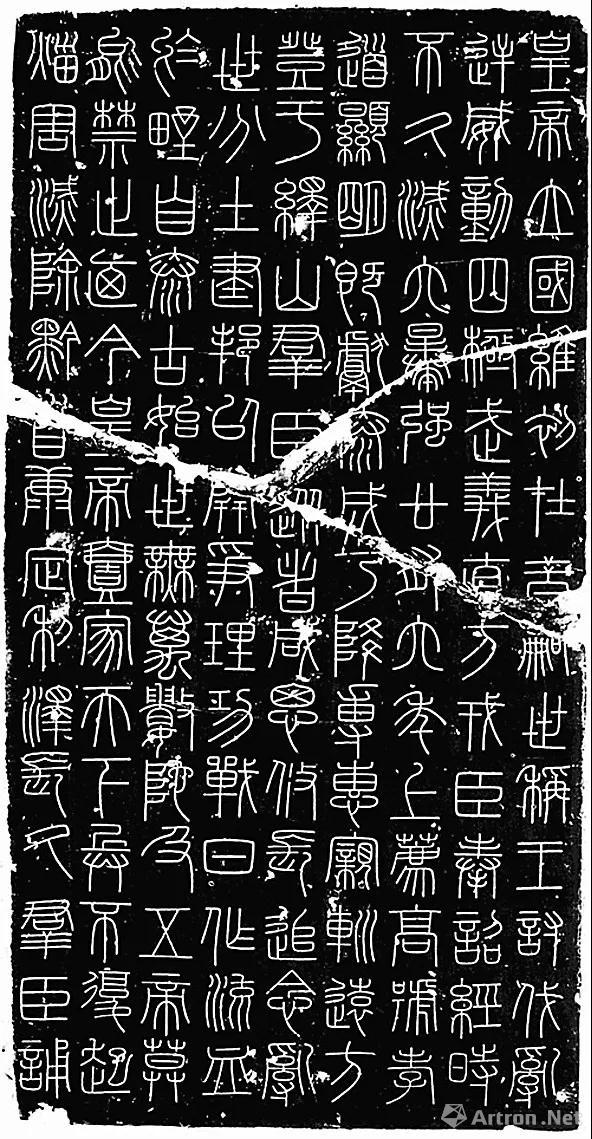 皇帝立國維初在昔嗣世稱王討伐亂
逆威動四極武義直方戎臣奉詔經時
不久滅六暴強廿有六年上薦高號孝
道顯明既獻泰成乃降專惠親巡遠方
登于繹山羣臣從者咸思攸長追念亂
世分土建邦以開爭理功戰日作流血
於野自泰古始世無萬數陀及五帝莫
能禁止迺今皇帝壹家天下兵不復起
災害滅除黔首康定利澤長久羣臣誦
Artron.Net